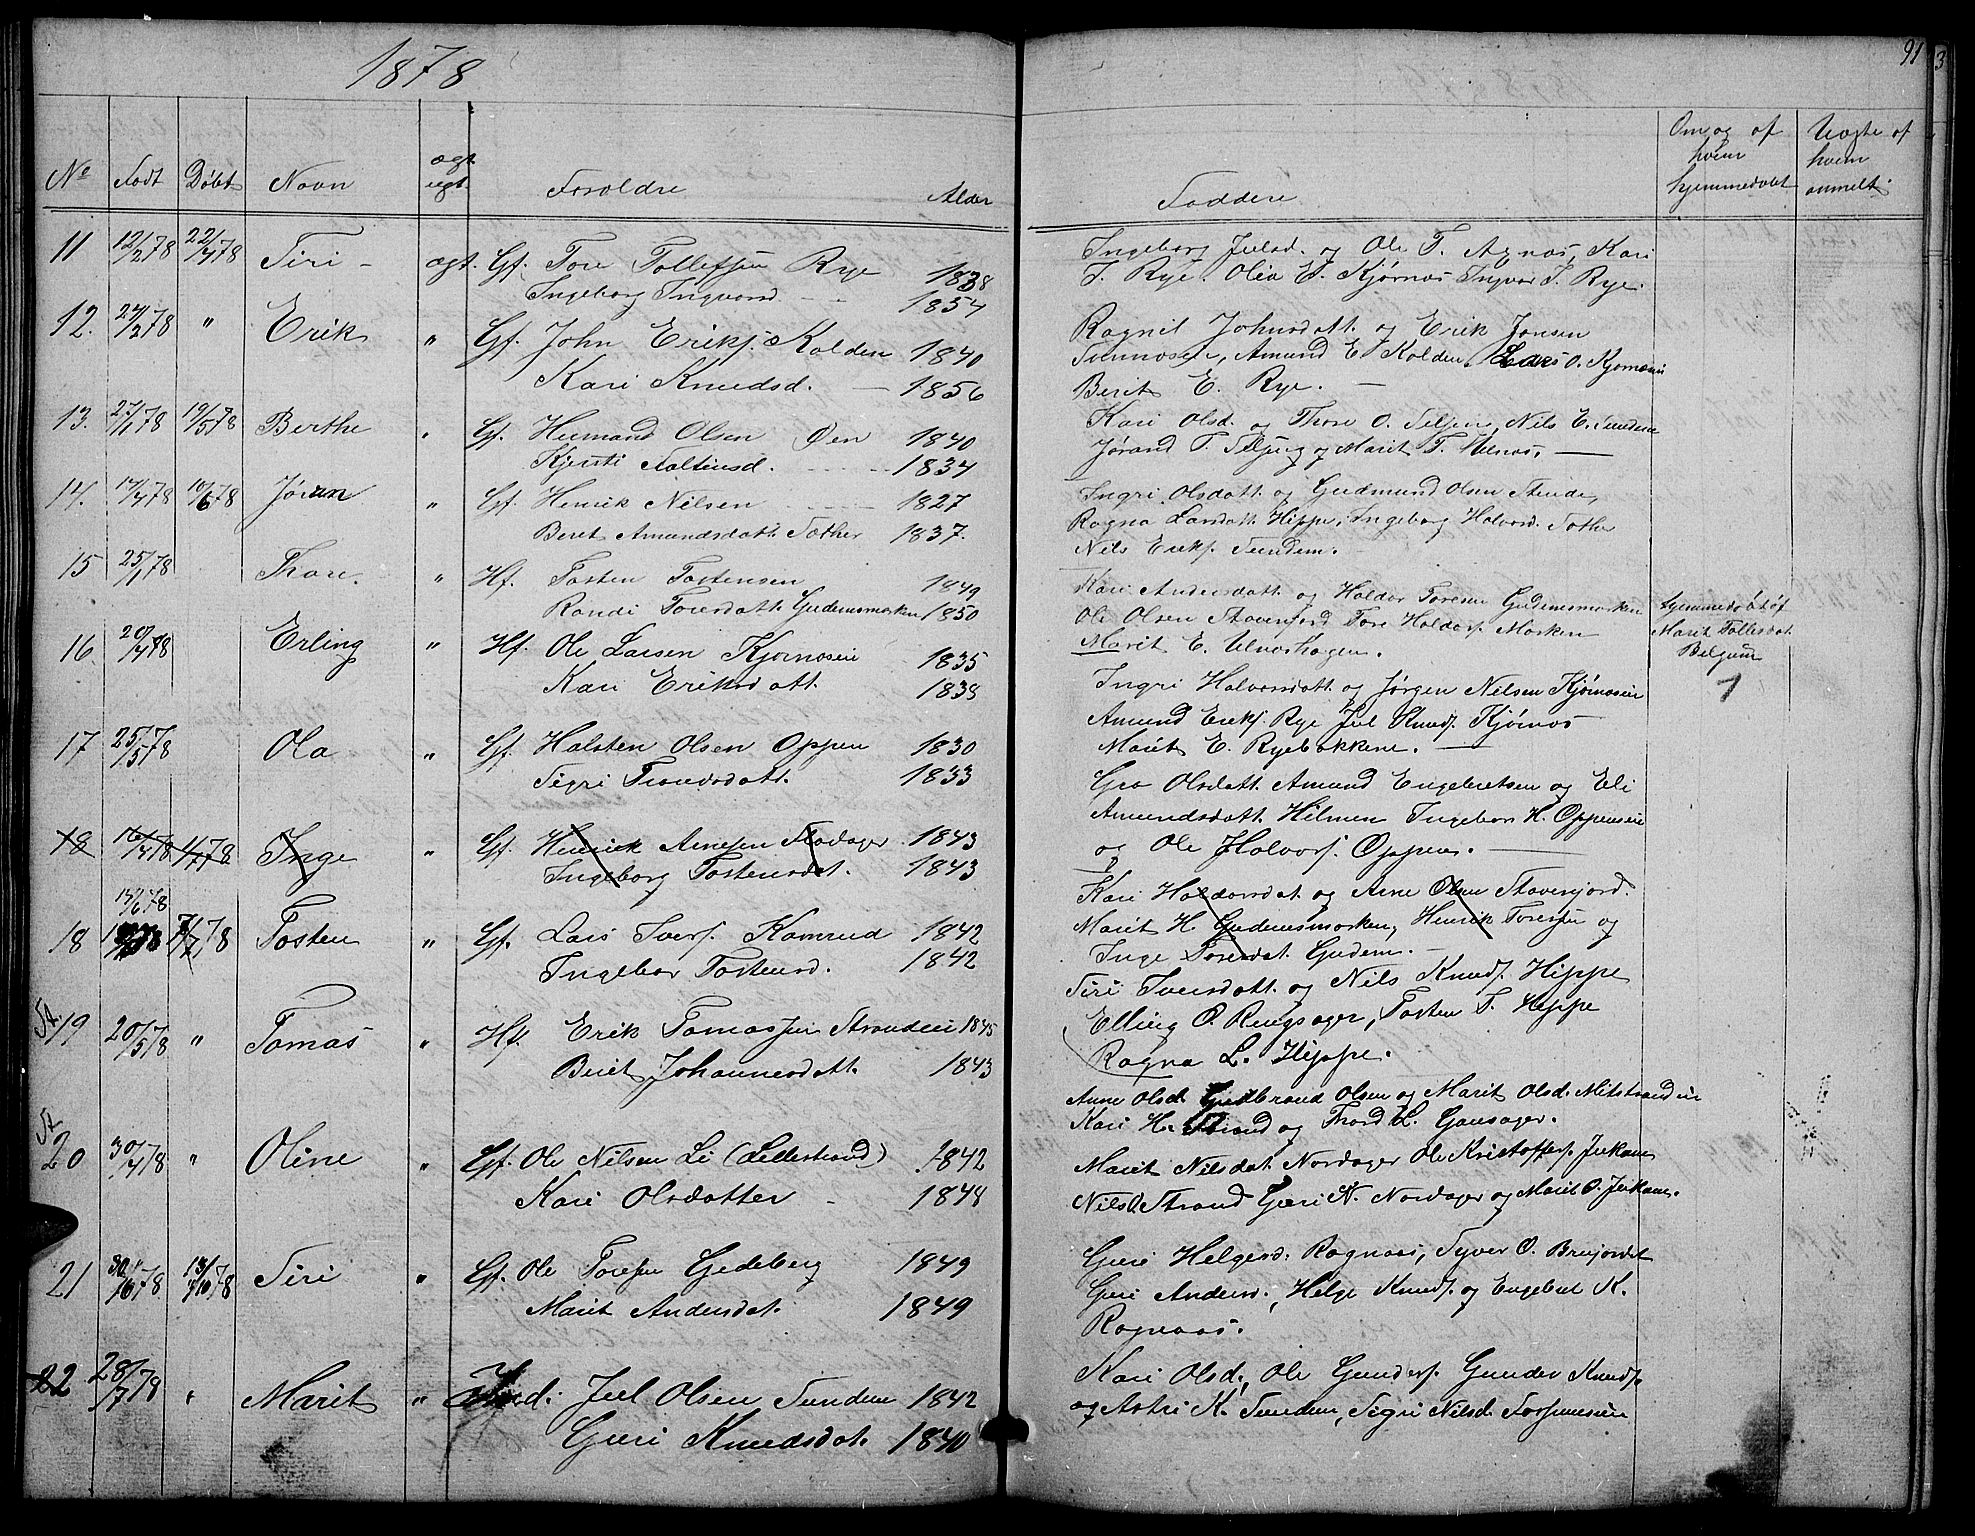 1878
91
3
No Født Døbt Navn ægt. uægt. Forældre Alder
Faddere
Om og af hvem hjemmedøbt
Uægte af hvem anmelt
11 12/2 78 22/4 78 Siri - ægt. Gf. Tore Tollefsen Rye 1838
Ingeborg Ingvarsd - - 1854
Ingeborg Julsd. og Ole T. Agnæs, Kari
T. Rye. Olia E. Kjørnæs Ingvar T. Rye.
12. 24/2 78 " Erik " Gf. John Eriks. Kolden 1840
Kari Knudsd. — 1856
Ragnil Johnsdatt. og Erik Jonsen
Amund E. Kolden, Lars O. Kjørnæsei
Berit E. Rye. —
13. 27/1 78 19/5 78 Berthe " Gf. Hermand Olsen Øen 1840
Kjersti 1834
Kari Olsd. og Thore O. Seljen, Nils E. Sundem
Jørand T. Seljeng og Marit T. Ulnæs, —
14. 17/4 78 10/6 78 Jøran " Gf. Henrik Nilsen 1827
Berit Amundsdatt. Sæther 1837.
Ingri Olsdatt. og Gudmund Olsen Stende,
Ragna Larsdatt. Hippe, Ingeborg Halvorsd. Sæther
Nils Eriks. Sundem. -
15 25/1 78 Thore. " Hf. Tosten Tostensen 1849
Randi Toresdatt. Gudemsmorken 1850
Kari Andersdatt. og Haldor Toresen Gudemsmorken
Ole Olsen Stavenjord Tore Haldors. Morken
Marit E. Ulverhagen.
hjemmedøbt af
Marit Tollesdat.
Belgum
16. 20/4 78 Erling " Hf. Ole Larsen Kjørnæsei 1835
Kari Eriksdatt. 1838
Ingri Halvorsdatt. og Jørgen Nilsen Kjørnæsein
Amund Eriks. Rye Jul Knuds. Kjørnæs
Marit E. Ryebakkene. —
17 25/5 78 Ola " Gf. Halsten Olsen Oppen 1830
Sigri Trondsdatt. 1833
Gro Olsdatt. Amund Engebretsen og Eli
Amundsdatt. Hilmen Ingebor H. Oppensei
og Ole Halvors. Oppen. —
18 16/4 78 4/7 78 Inge " Gf. Henrik Arnesen Flodager 1843
Ingeborg Tostensdat. 1843
Kari Haldorsdat. og Arne Olsen Stavenjord.
Marit H. Gudemsmorken, Henrik Toresen og
Inge Toresdat. Gudem. —
18 15/6 78 7/7 78 Tosten " Gf. Lars Ivers. Kamrud 1842
Ingebor Tostensd. 1842
Siri Iversdatt. og Nils Knuds. Hippe
Elling O. Ringsager, Tosten T. Hippe
Ragna L. Hippe.
St. 19 20/5 78 " Tomas " Hf. Erik Tomassen Strandei 1845
Berit Johannesdatt. 1843
Anne Olsd. Gudbrand Olsen og Marit Olsd. Mitstrandein
Kari H. Strand og Thord L. Gausager.
St. 20 30/4 78 " Oline " Gf. Ole Nilsen Li (Lillestrand) 1842
Kari Olsdatter - 1848
Marit Nilsdat. Nordager Ole Kristoffers.
Nils O. Strand Guri N. Nordager og Marit O.
21 30/10 78 13/10 78 Siri " Gf. Ole Toresen Gjedeberg 1849
Marit Andersdat. 1849
Guri Helgesd. Ragnaas, Syver O. Brujordet
Guri Andersd., Helge Knuds. og Engebret K.
Ragnaas.
22 28/7 78 " Marit " Ind. Jul Olsen Sundem 1842
Guri Knudsdat. 1840
Kari Olsd., Ole Gunders. Gunder Knuds.
og Astri K. Sundem, Sigri Nilsd.